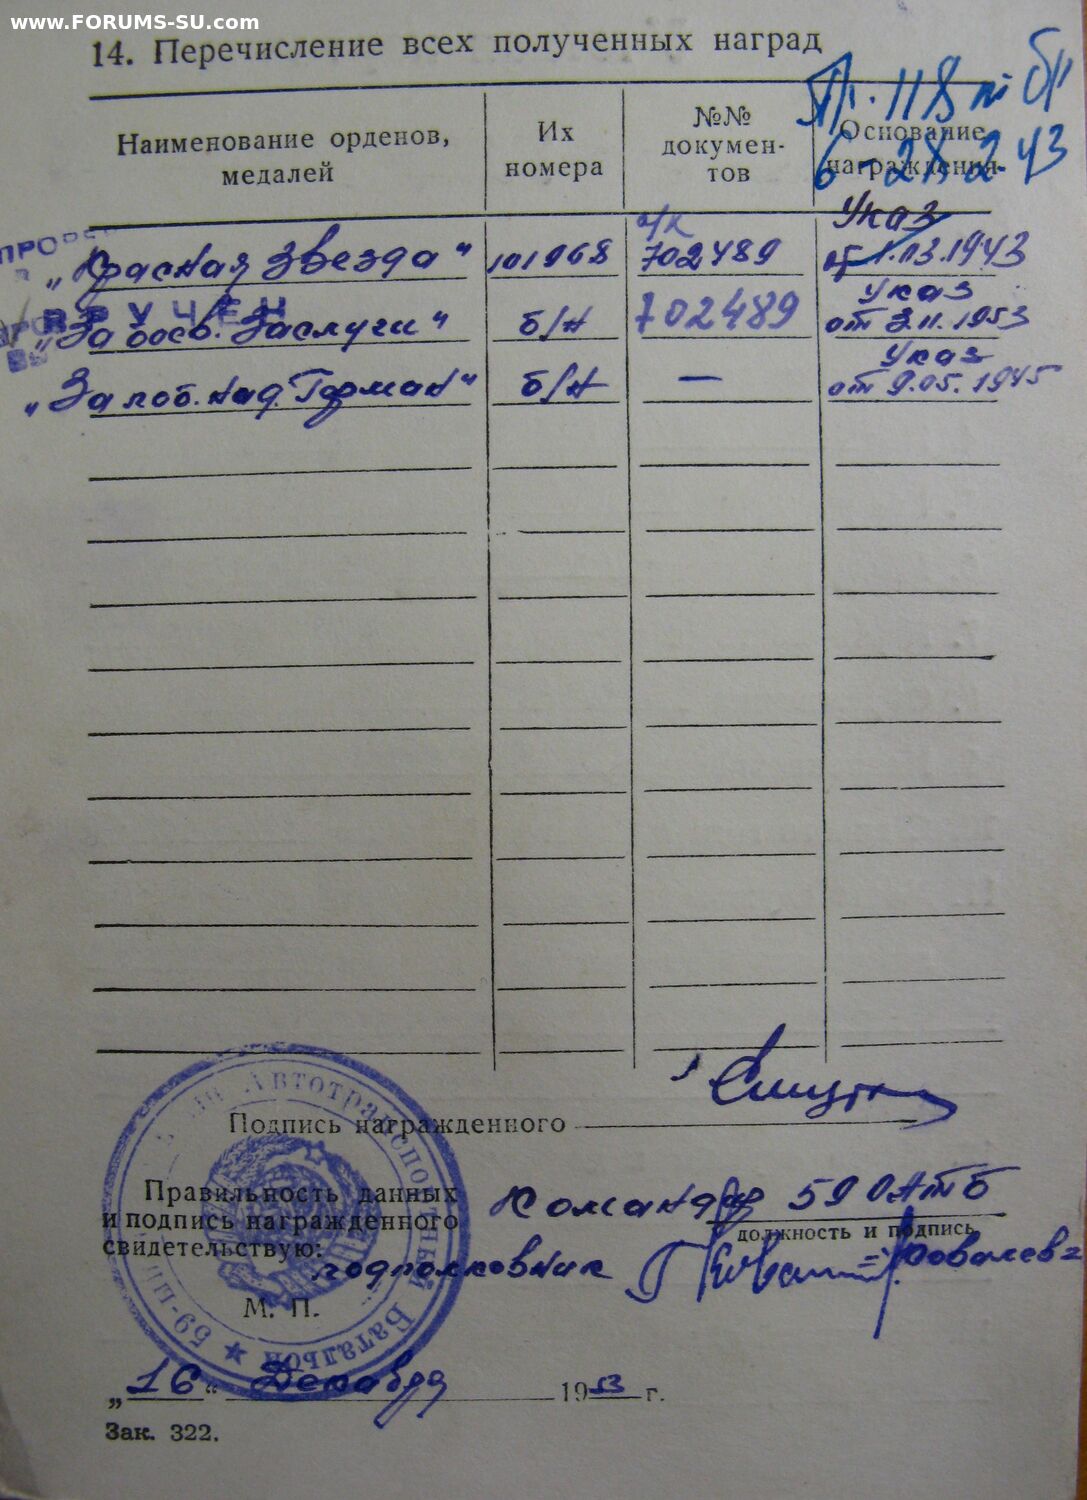 www.FORUMS-SU.com
14. Перечисление всех полученных наград
Пр. 118 по
6-28.2.43
Наименование орденов, медалей
Их номера
№№ докумен-тов
Основание награждения
о/к
Указ
„Красная Звезда" 101968 702489 от 1.03.1943
ВРУЧЕН
Указ
„За боев. Заслуги" б/н 702489 от 3.11.1953
Указ
„За поб. над Герман" б/н — от 9.05.1945
Подпись награжденного
Правильность данных
и подпись награжденного
свидетельствую:
Командир 59 ОАТБ
должность и подпись
подполковник Ковалев
М. П.
59-й Автотранспортный Батальон
„16" Декабря 1953 г.
Зак. 322.